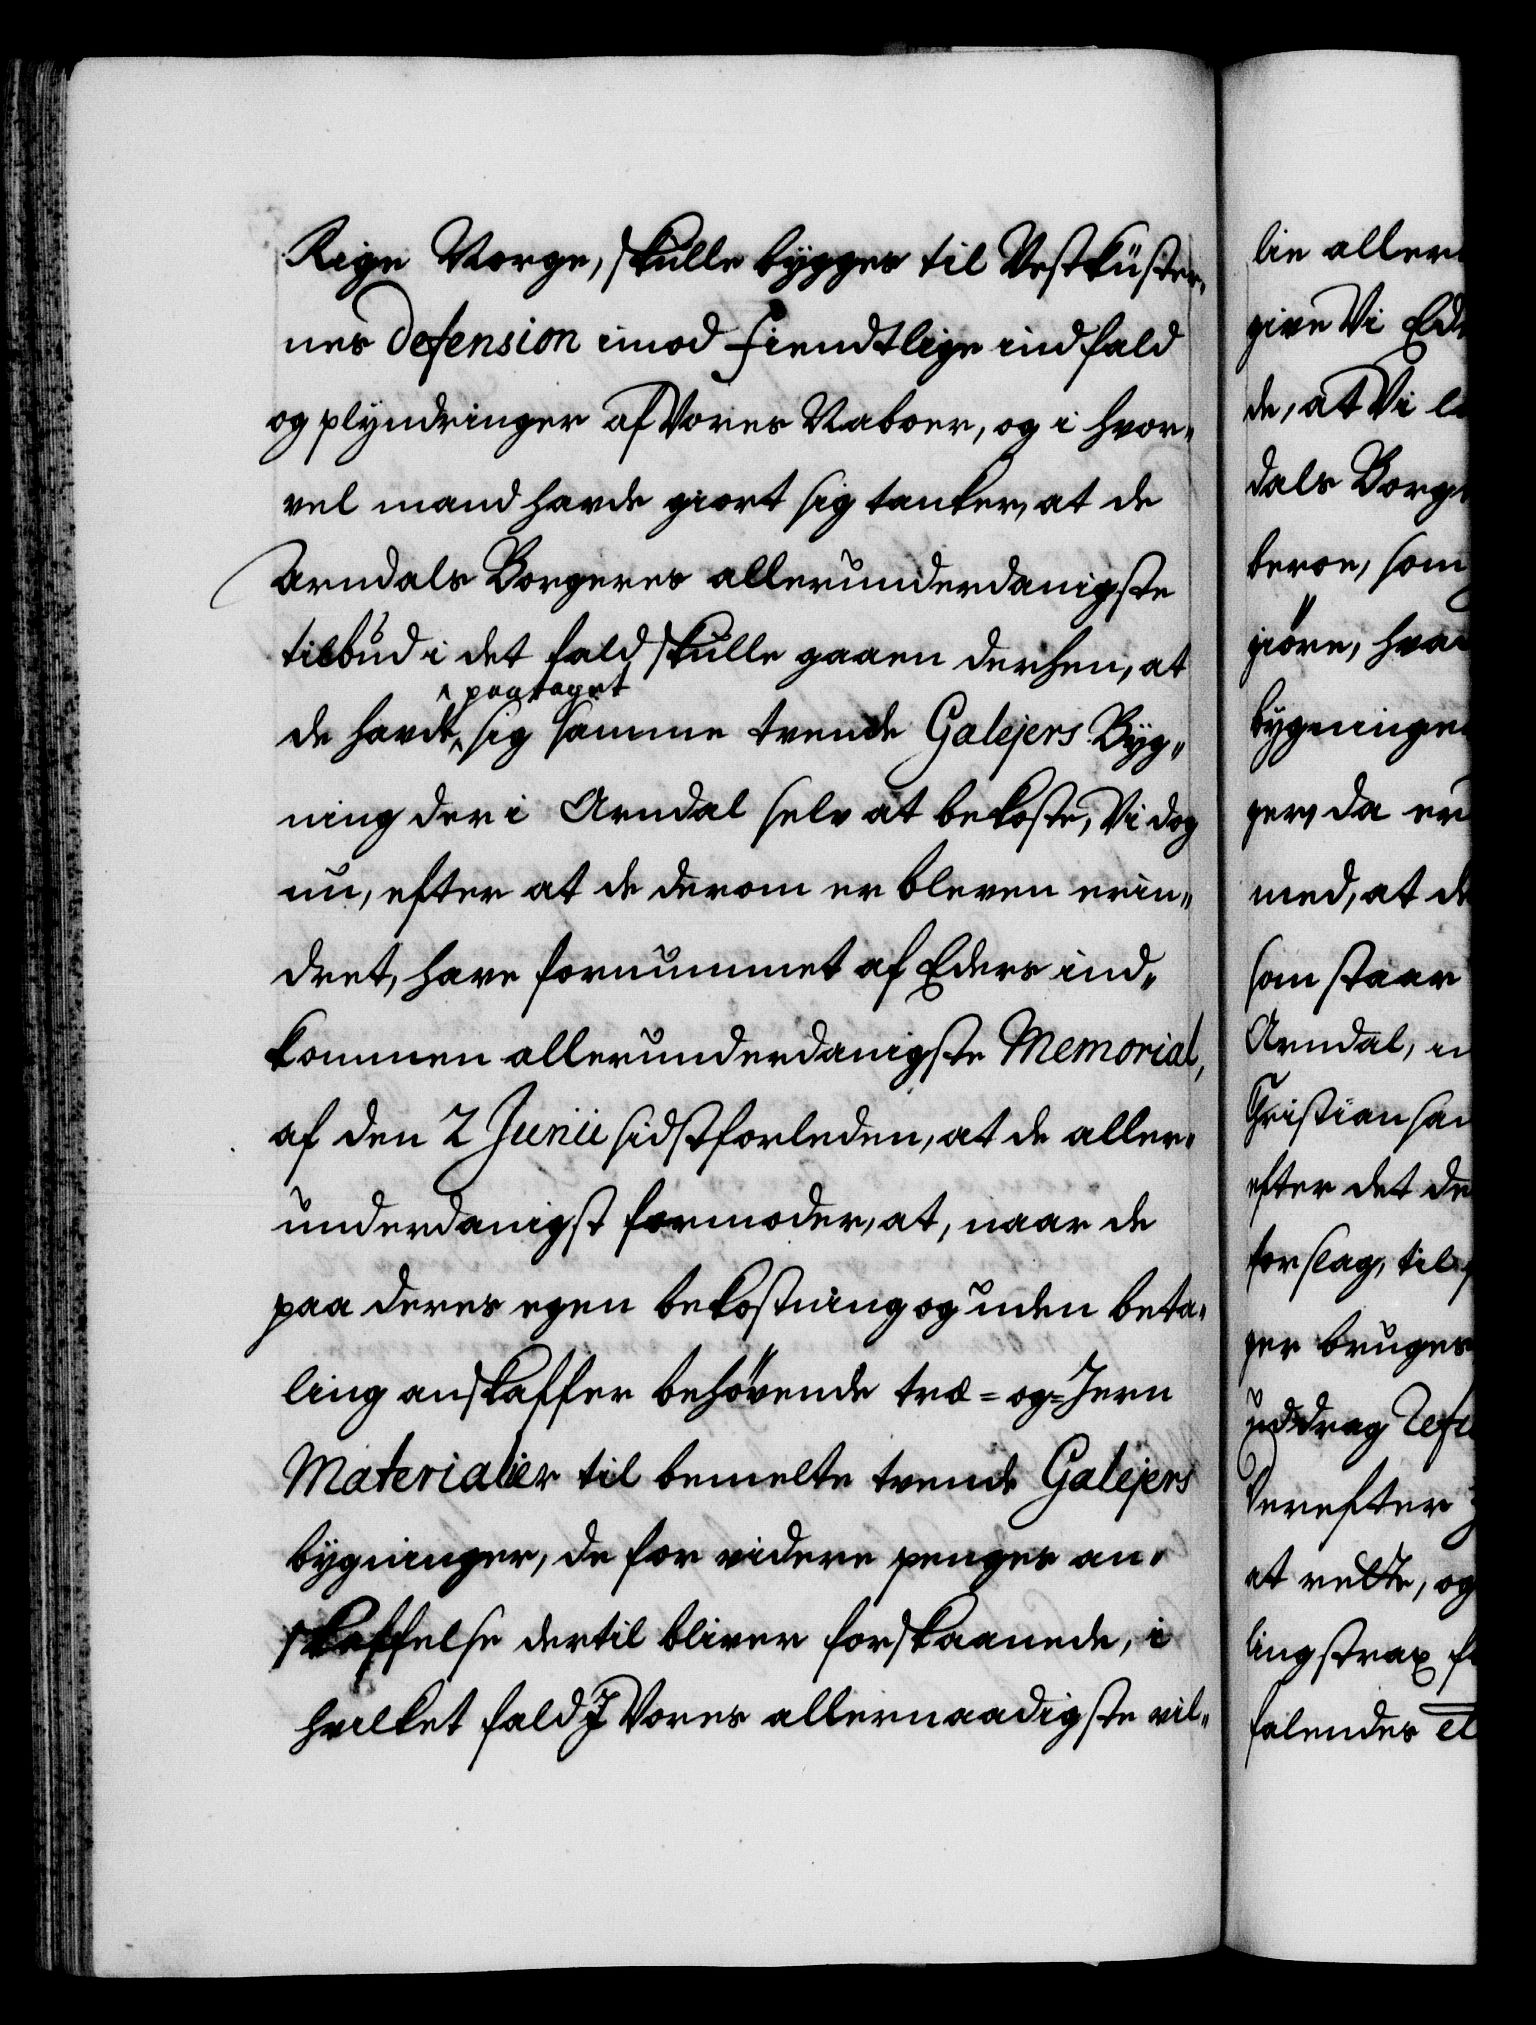 Rige Norge, skulle bygges til Vestküster,
nes Defension imod Fiendtlige indfald
og plyndringer af Vores Naboer, og i hvor,
vel mand havde giort sig tanker, at de
Arndals Borgeres allerunderdanigste
tilbud i det fald skulle gaaen derhen, at
paataget
de havde sig samme trende Galejers Byg„
ning der i Arndal selv at bekoste, Vi dog
nu, efter at de derom er bleven erin„
dret, have fornummet af Eders ind„
kommen allerunderdanigste Memorial,
af den 2 Junii sidstforleden, at de aller„
underdanigst formoder, at, naar de
paa deres egen bekostning og uden beta„
ling anskaffer behövende træ= og= Jern
Materialier til bemelte trende Galejers
bygninger, de for videre penges an„
skaffelse dertil bliver forskaanede, i
hvilket fald J Vores allernaadigste vil„
lie aller
give Vi Ed
de, at Vi l
dals Borge
beroe, som
giöre, hva
bygninge
ger, da er
med, at d
som staar
Arndal, i
Christiansan
efter det de
forslag, til
ger bruges
uddrag
Derefter
at rette, og
lingstrax f
falendes